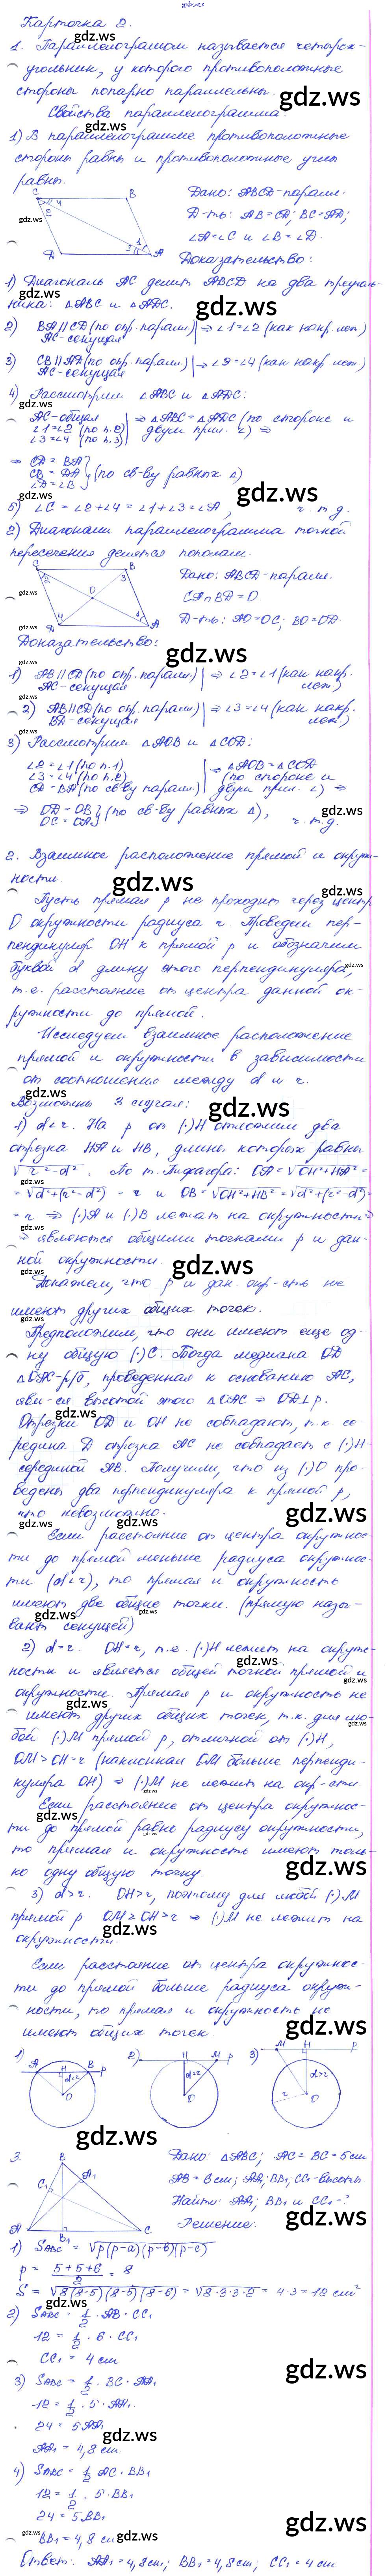 gdz.ws
Карточка 2.
1. Параллелограммом называется четырех-
угольник, у которого противоположные
стороны попарно параллельны.
Свойства параллелограмма:
1) В параллелограмме противоположные
стороны равны и противоположные углы
равны.
Дано: ABCD-паралл.
Д-ть: AB=CD; BC=AD;
∠A=∠C и ∠B=∠D.
Доказательство:
1) Диагональ AC делит ABCD на два треуголь-
ника: △ABC и △ADC.
2) BA∥CD (по опр. паралл.) | ⇒ ∠1=∠2 (как накр. леж)
AC-секущая
3) CB∥AD (по опр. паралл.) | ⇒ ∠3=∠4 (как накр леж)
AC-секущая
4) Рассмотрим ∠ABC и △ADC:
AC-общая | ⇒ △ABC=△ADC (по стороне и
∠1=∠2 (по п.2) двум прил. ∠) ⇒
∠3=∠4 (по п.3)
⇒ CD = BA
CB = DA } (по св-ву равных △)
∠D=∠B
5) ∠C=∠2+∠4=∠1+∠3=∠A, ч.т.д.
2) Диагонали параллелограмма точкой
пересечения делятся пополам.
Дано: ABCD-паралл.
CA∩BD=O.
Д-ть: AO=OC; BO=OD.
Доказательство:
1) AB∥CD (по опр. паралл.) | ⇒ ∠2=∠1 (как накр.
AC-секущая леж.)
2) AB∥CD (по опр. паралл.) | ⇒ ∠3=∠4 (как накр.
BD-секущая леж)
3) Рассмотрим △AOB и △COD:
∠2=∠1 (по п.1) | ⇒ △AOB=△COD
∠3=∠4 (по п.2) (по стороне и
CD=BA (по св-ву паралл.) двум прил. ∠) ⇒
⇒ OD=OB } (по св-ву равных △),
OC=OA ч.т.д.
2. Взаимное расположение прямой и окруж-
ности.
Пусть прямая p не проходит через центр
O окружности радиуса r. Проведем пер-
пендикуляр OH к прямой p и обозначим
буквой d длину этого перпендикуляра,
т.е. расстояние от центра данной ок-
ружности до прямой.
Исследуем взаимное расположение
прямой и окружности в зависимости
от соотношения между d и r.
Возможны 3 случая:
1) d<r. На p от (·)H отложим два
отрезка HA и HB, длины которых равны
√r²-d². По т. Пифагора: OA=√OH²+HA²=
=√d²+(r²-d²) = r и OB=√OH²+HB²=√d²+(r²-d²)=
=r ⇒ (·)A и (·)B лежат на окружности ⇒
⇒ являются общими точками p и дан-
ной окружности.
Докажем, что p и дан. окр-сть не
имеют других общих точек.
Предположим, что они имеют еще од-
ну общую (·)C. Тогда медиана OD
△OAC-р/б, проведенная к основанию AC,
явл-ся высотой этого △OAC ⇒ OD⊥p.
Отрезки OD и OH не совпадают, т.к се-
редина D отрезка AC не совпадает с (·)H-
серединой AB. Получили, что из (·)O про-
ведены два перпендикуляра к прямой p,
что невозможно.
Если расстояние от центра окружнос-
ти до прямой меньше радиуса окружнос-
ти (d<r), то прямая и окружность
имеют две общие точки. (прямую назы-
вают секущей)
2) d=r. OH=r, т.е. (·)H лежит на окруж-
ности и является общей точкой прямой и
окружности. Прямая p и окружность не
имеют других общих точек, т.к. для лю-
бой (·)M прямой p, отличной от (·)H,
OM>OH=r (наклонная OM больше перпенди-
куляра OH) ⇒ (·)M не лежит на окр-сти.
Если расстояние от центра окружнос-
ти до прямой равно радиусу окружности,
то прямая и окружность имеют толь-
ко одну общую точку.
3) d>r. OH>r, поэтому для любой (·)M
прямой p OM≥OH>r ⇒ (·)M не лежит на
окружности.
Если расстояние от центра окружнос-
ти до прямой больше радиуса окруж-
ности, то прямая и окружность не
имеют общих точек.
1) A H B p d<r O
2) H M p d=r O
3) M H p d>r r O
3. Дано: △ABC; AC=BC=5см
AB=6см; AA₁; BB₁; CC₁-высоты
Найти: AA₁; BB₁ и CC₁-?
Решение:
1) S_ABC = √p(p-a)(p-b)(p-c)
p = (5+5+6)/2 = 8
S=√8(8-5)(8-5)(8-6) = √8·3·3·2 = 4·3=12 см²
2) S_ABC = 1/2 · AB · CC₁
12 = 1/2 · 6 · CC₁
CC₁ = 4 см
3) S_ABC = 1/2 · BC · AA₁
12 = 1/2 · 5 · AA₁
24 = 5AA₁
AA₁ = 4,8 см
4) S_ABC = 1/2 AC · BB₁
12 = 1/2 · 5 · BB₁
24 = 5BB₁
BB₁ = 4,8 см
Ответ: AA₁=4,8см; BB₁=4,8см; CC₁=4см